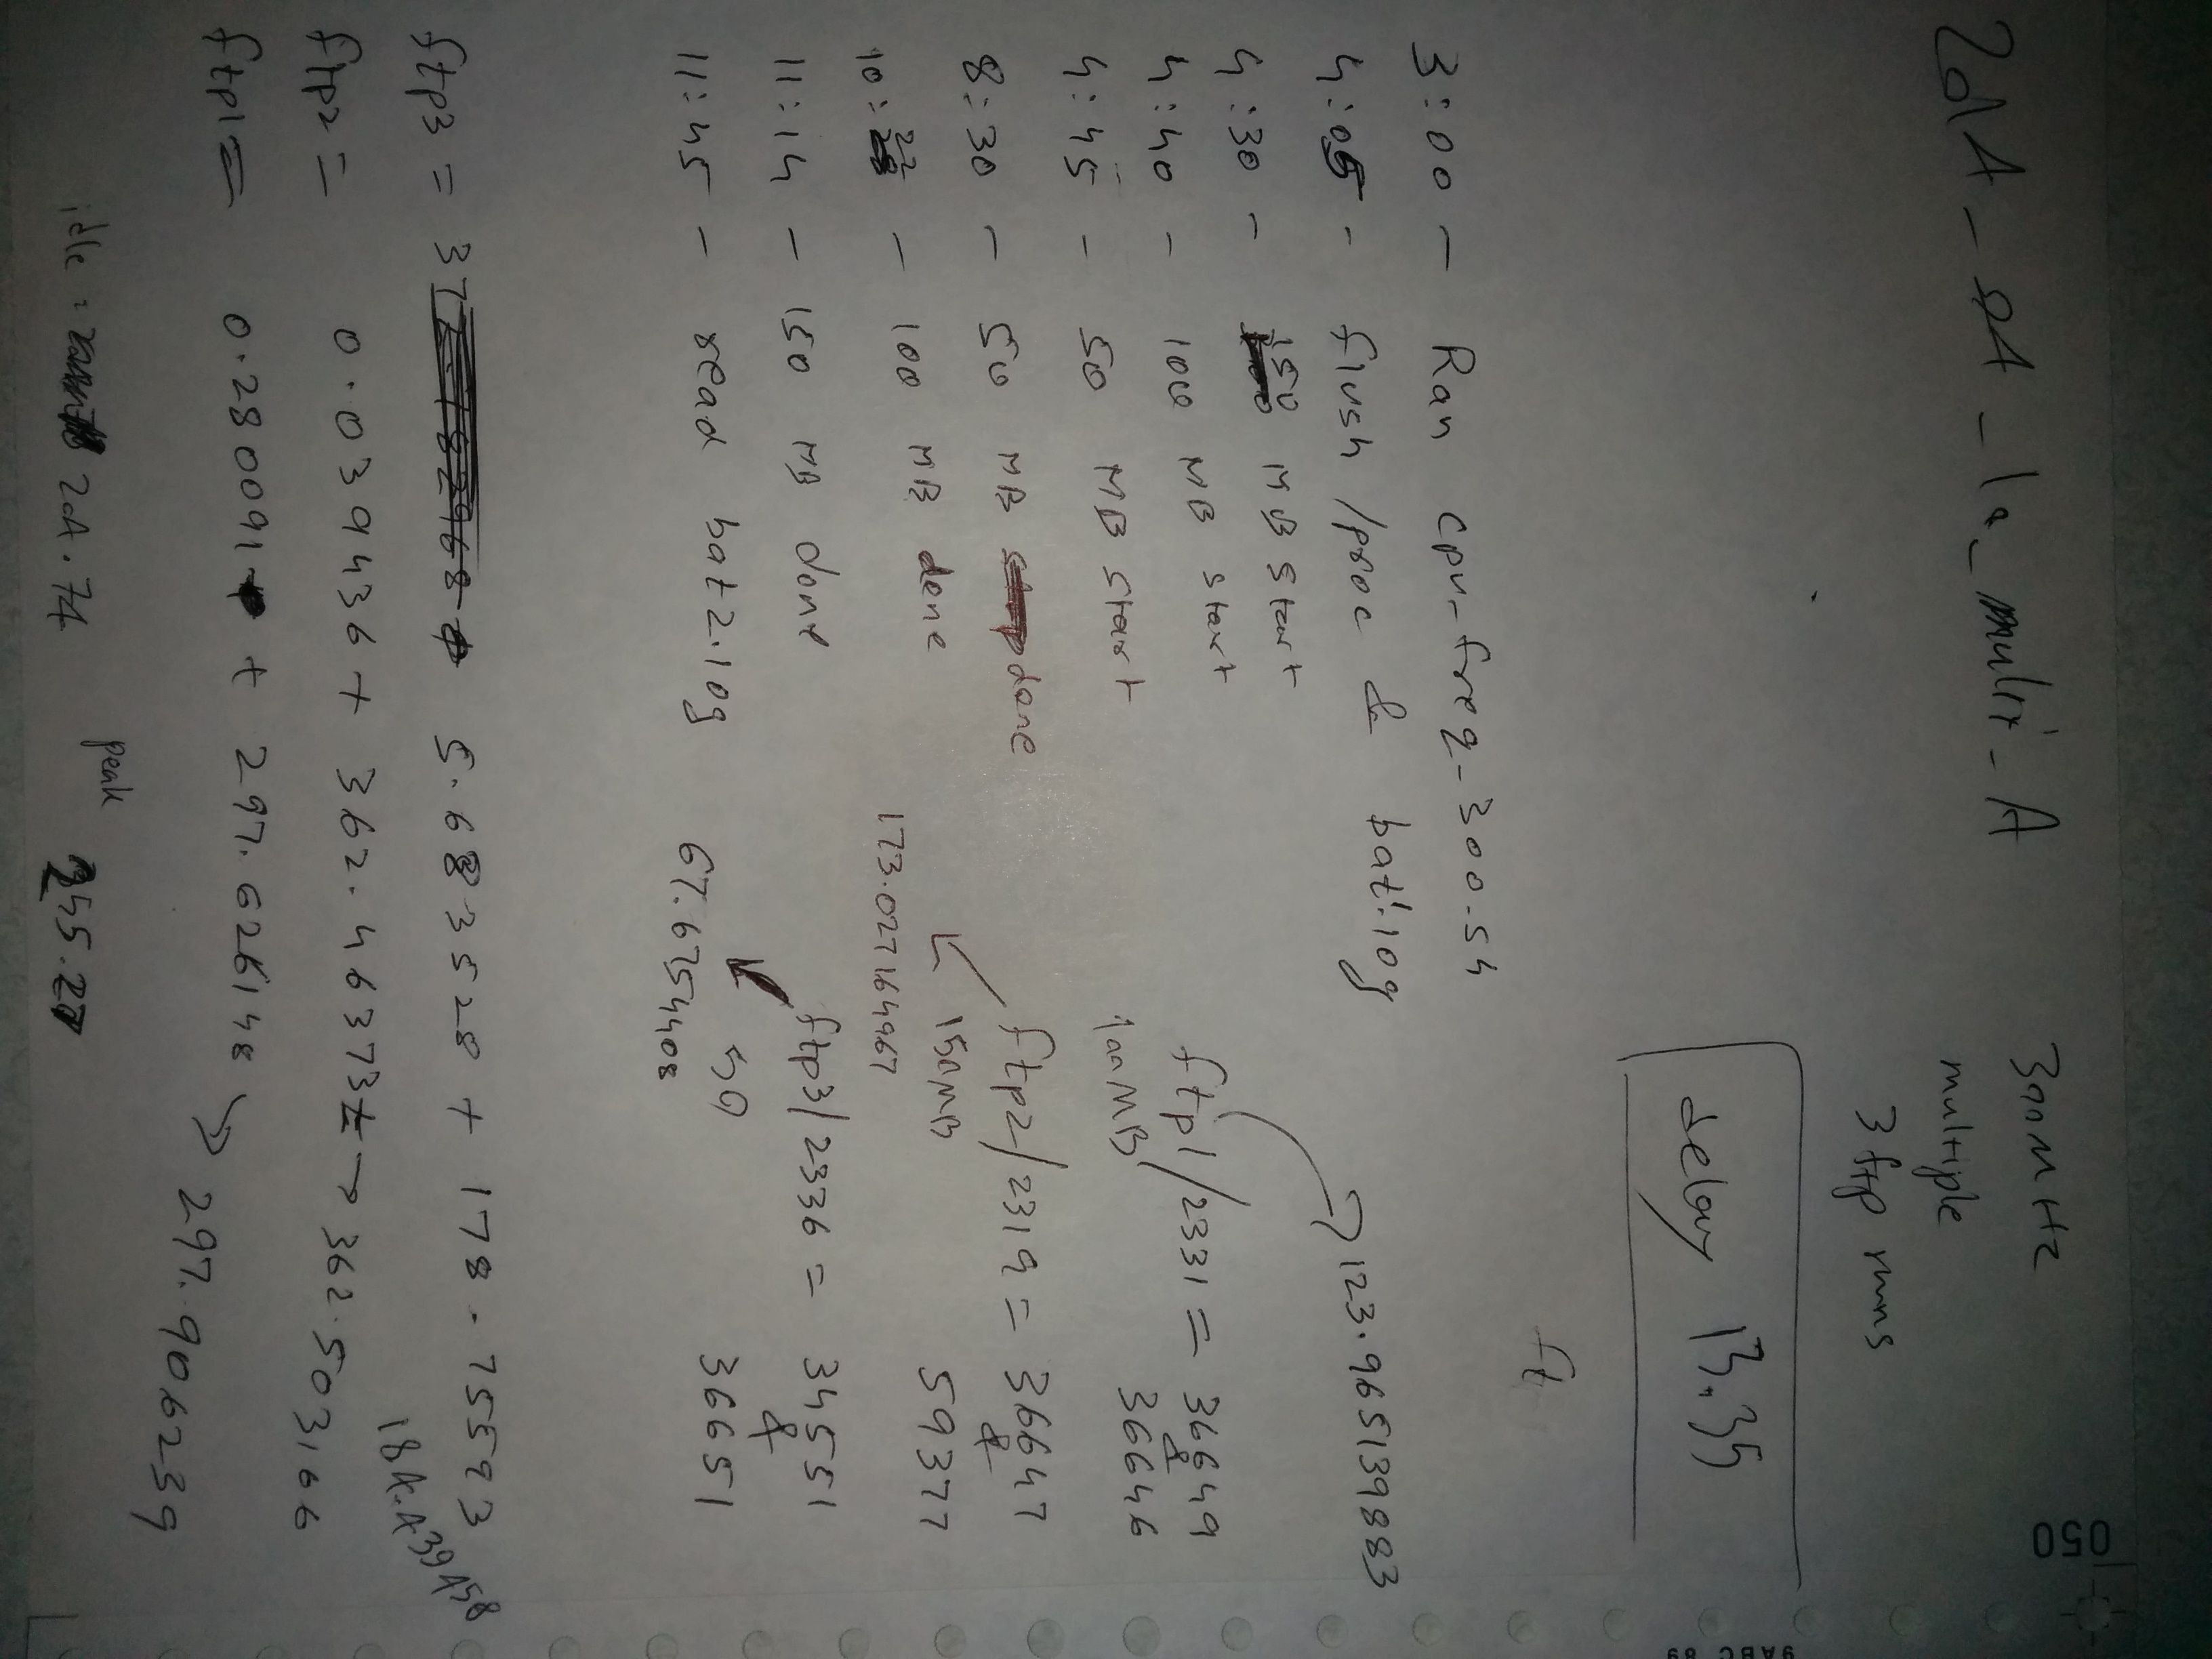 300MHz
multiple
3 ftp runs
delay 13.35
3:00 - Ran cpu-freq-300-54
4:05 - flush /proc & bat1.log
4:30 - 150 MB start
4:40 - 100 MB start
4:45 - 50 MB start
8:30 - 50 MB done
10:22 - 100 MB done
11:14 - 150 MB done
11:45 - read bat2.log
ft
123.965139883
ftp1/2331 = 36649
100MB 36646
ftp2/2319 = 36647
150MB 59377
173.027164967
ftp3/2336 = 34551
50 36651
67.6754408
ftp3 = 5.6883528 + 178.755593
ftp2 = 0.039436 + 362.46373 → 362.503166
ftp1 = 0.280091 + 297.626148 → 297.906239
idle = 201.74
peak 245.27
050
9ABC 89